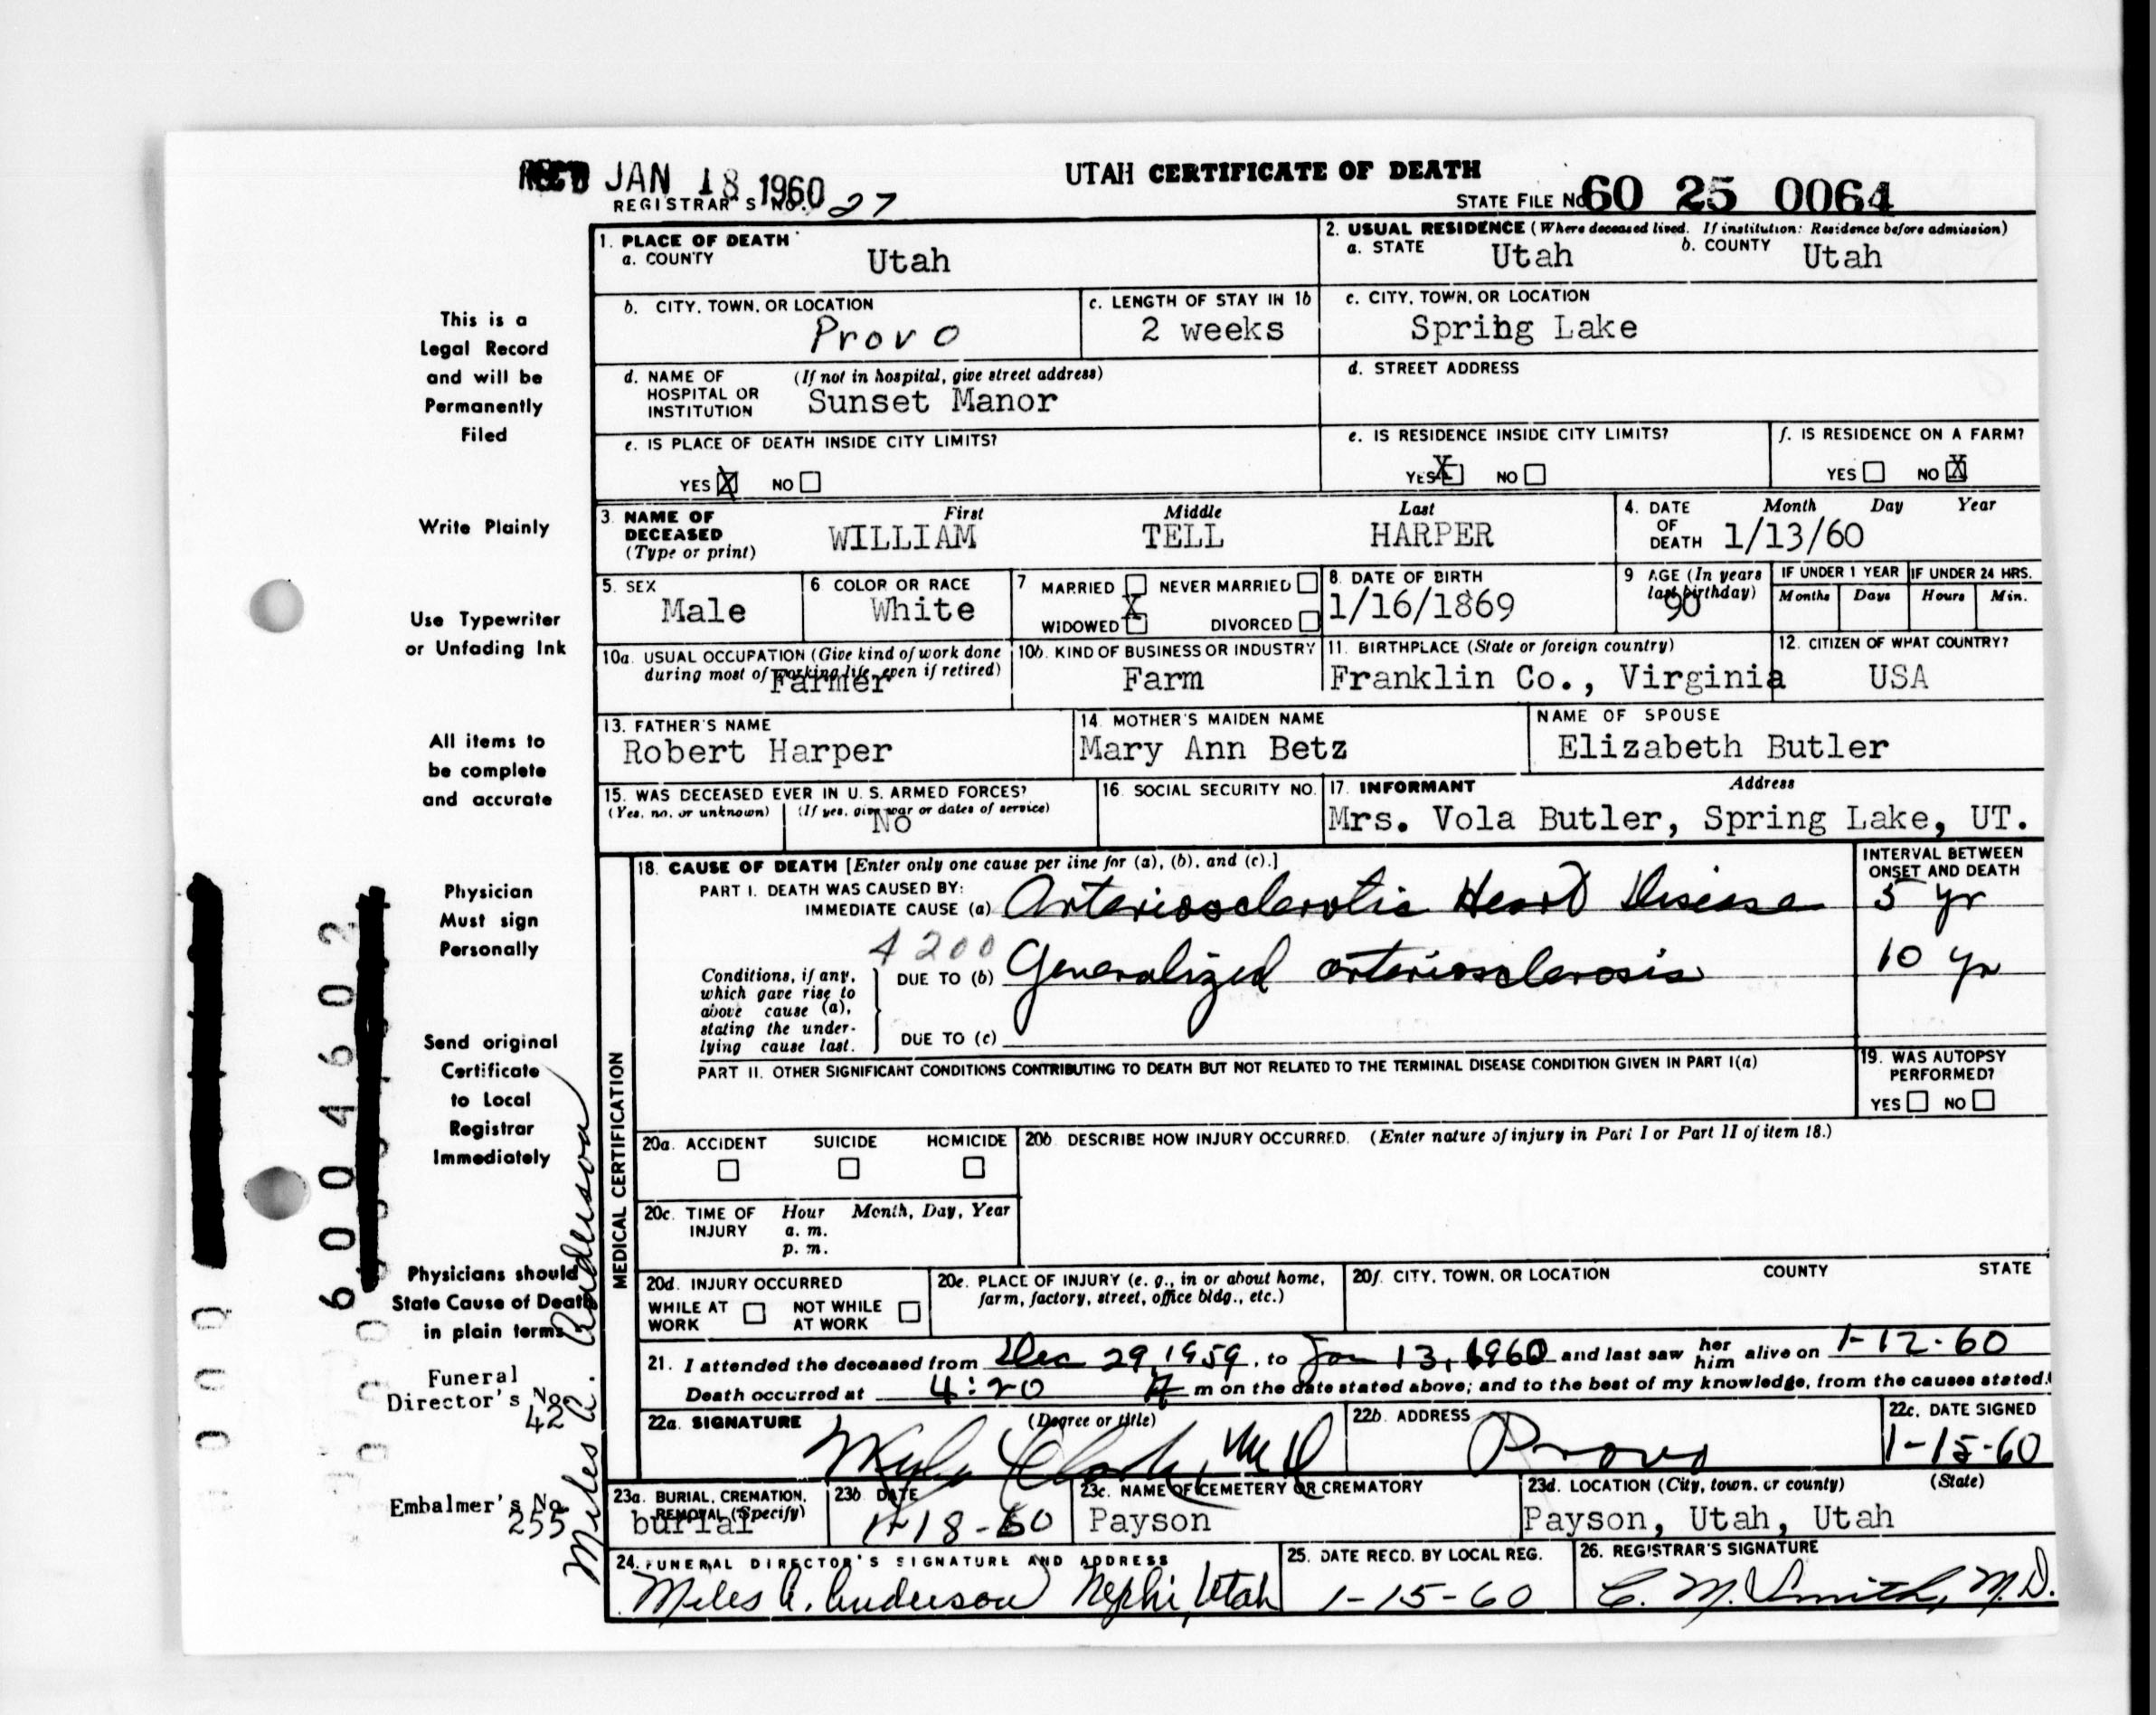 REC'D JAN 18 1960
UTAH CERTIFICATE OF DEATH
REGISTRAR'S NO. 27
STATE FILE NO. 60 25 0064
This is a
Legal Record
and will be
Permanently
Filed
Write Plainly
Use Typewriter
or Unfading Ink
All items to
be complete
and accurate
Physician
Must sign
Personally
Send original
Certificate
to Local
Registrar
Immediately
Physicians should
State Cause of Death
in plain terms
Funeral
Director's No.
42
Embalmer's No.
255
Miles A. Anderson
6004602
1. PLACE OF DEATH
a. COUNTY Utah
2. USUAL RESIDENCE (Where deceased lived. If institution: Residence before admission)
a. STATE Utah b. COUNTY Utah
b. CITY, TOWN, OR LOCATION
Provo
c. LENGTH OF STAY IN 1b
2 weeks
c. CITY, TOWN, OR LOCATION
Spring Lake
d. NAME OF HOSPITAL OR INSTITUTION (If not in hospital, give street address)
Sunset Manor
d. STREET ADDRESS
e. IS PLACE OF DEATH INSIDE CITY LIMITS?
YES X NO
e. IS RESIDENCE INSIDE CITY LIMITS?
YES X NO
f. IS RESIDENCE ON A FARM?
YES NO X
3. NAME OF DECEASED (Type or print)
First Middle Last
WILLIAM TELL HARPER
4. DATE OF DEATH Month Day Year
1/13/60
5. SEX
Male
6 COLOR OR RACE
White
7 MARRIED NEVER MARRIED
WIDOWED X DIVORCED
8. DATE OF BIRTH
1/16/1869
9 AGE (In years last birthday)
90
IF UNDER 1 YEAR IF UNDER 24 HRS.
Months Days Hours Min.
10a. USUAL OCCUPATION (Give kind of work done during most of working life, even if retired)
Farmer
10b. KIND OF BUSINESS OR INDUSTRY
Farm
11. BIRTHPLACE (State or foreign country)
Franklin Co., Virginia
12. CITIZEN OF WHAT COUNTRY?
USA
13. FATHER'S NAME
Robert Harper
14. MOTHER'S MAIDEN NAME
Mary Ann Betz
NAME OF SPOUSE
Elizabeth Butler
15. WAS DECEASED EVER IN U. S. ARMED FORCES?
(Yes, no, or unknown) (If yes, give war or dates of service)
No
16. SOCIAL SECURITY NO.
17. INFORMANT Address
Mrs. Vola Butler, Spring Lake, UT.
MEDICAL CERTIFICATION
18. CAUSE OF DEATH [Enter only one cause per line for (a), (b), and (c).]
INTERVAL BETWEEN ONSET AND DEATH
PART I. DEATH WAS CAUSED BY:
IMMEDIATE CAUSE (a) Arteriosclerotic Heart Disease 5 yr
4200
Conditions, if any, which gave rise to above cause (a), stating the underlying cause last.
DUE TO (b) Generalized arteriosclerosis 10 yr
DUE TO (c)
PART II. OTHER SIGNIFICANT CONDITIONS CONTRIBUTING TO DEATH BUT NOT RELATED TO THE TERMINAL DISEASE CONDITION GIVEN IN PART I(a)
19. WAS AUTOPSY PERFORMED?
YES NO
20a. ACCIDENT SUICIDE HOMICIDE
20b. DESCRIBE HOW INJURY OCCURRED. (Enter nature of injury in Part I or Part II of item 18.)
20c. TIME OF INJURY Hour Month, Day, Year
a. m.
p. m.
20d. INJURY OCCURRED
WHILE AT WORK NOT WHILE AT WORK
20e. PLACE OF INJURY (e. g., in or about home, farm, factory, street, office bldg., etc.)
20f. CITY, TOWN, OR LOCATION COUNTY STATE
21. I attended the deceased from Dec 29, 1959, to Jan 13, 1960 and last saw her him alive on 1-12-60
Death occurred at 4:20 A m on the date stated above; and to the best of my knowledge, from the causes stated.
22a. SIGNATURE (Degree or title)
Clark, MD
22b. ADDRESS
Provo
22c. DATE SIGNED
1-15-60
23a. BURIAL, CREMATION, REMOVAL (Specify)
burial
23b DATE
1-18-60
23c. NAME OF CEMETERY OR CREMATORY
Payson
23d. LOCATION (City, town, or county) (State)
Payson, Utah, Utah
24. FUNERAL DIRECTOR'S SIGNATURE AND ADDRESS
Miles A. Anderson Nephi, Utah
25. DATE RECD. BY LOCAL REG.
1-15-60
26. REGISTRAR'S SIGNATURE
C. M. Smith, M.D.